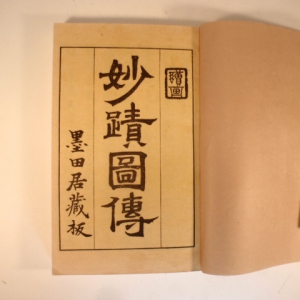 妙蹟圖傳
墨田居藏板